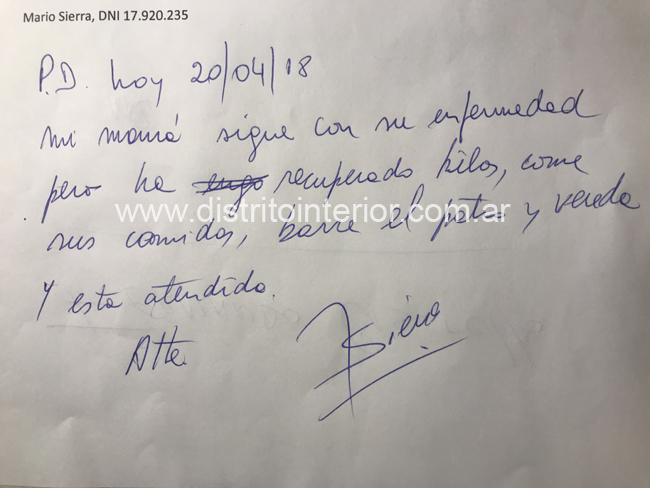 Mario Sierra, DNI 17.920.235
P.D. hoy 20/04/18
mi mamá sigue con su enfermedad
pero ha recuperado kilos, come
www.distritointerior.com.ar
sus comidas, barre el patio y vereda
y esta atendida.
Atte. Sierra